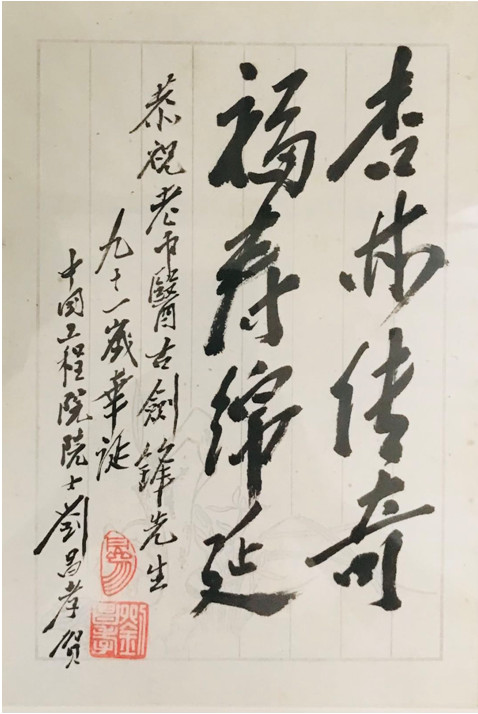 杏林传奇
福寿绵延
恭祝老中醫古劍鋒先生
九十一嵗華誕
中国工程院院士劉昌孝賀
劉昌孝